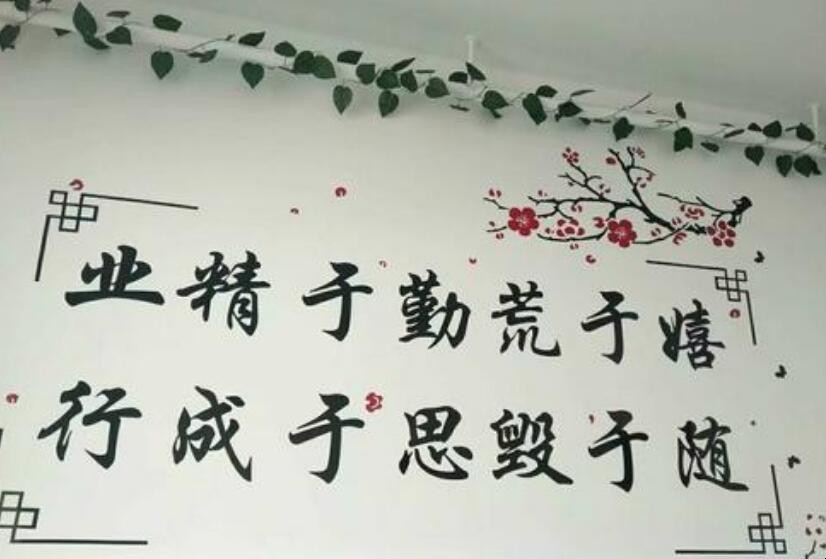 业精于勤荒于嬉
行成于思毁于随